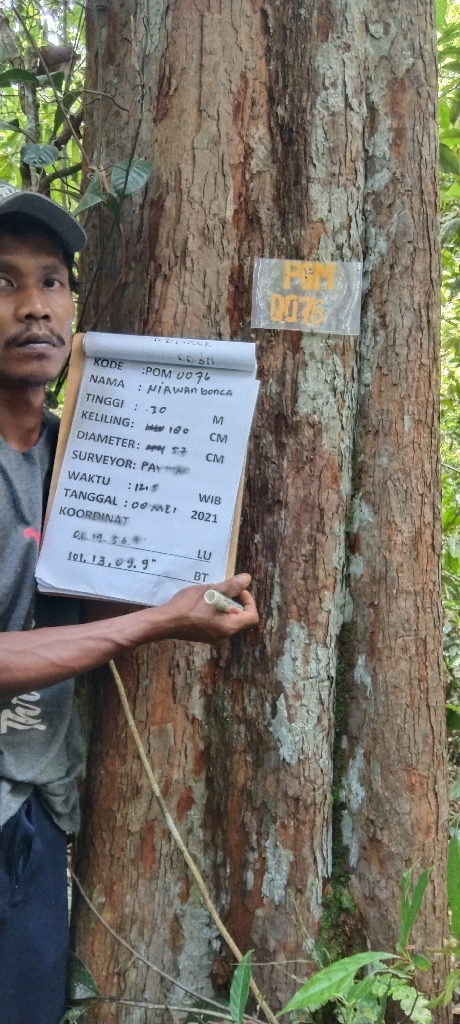 POM
0076
KODE :POM 0076
NAMA : MiAWAN bonca
TINGGI : 30 M
KELILING: 180 CM
DIAMETER: 57 CM
SURVEYOR:
WAKTU : 12.5 WIB
TANGGAL : 00 MEI 2021
KOORDINAT
LU
101. 13. 09. 9" BT